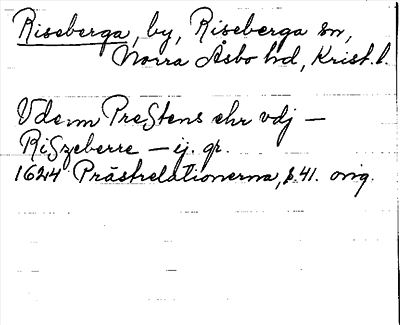 Riseberga, by, Riseberga sn,
Norra Åsbo hd, Krist. l.
Vdenn PreStens ehr vdj —
RiSzeberre — ij. gr.
1624 Prästrelationerna, s. 41. orig.